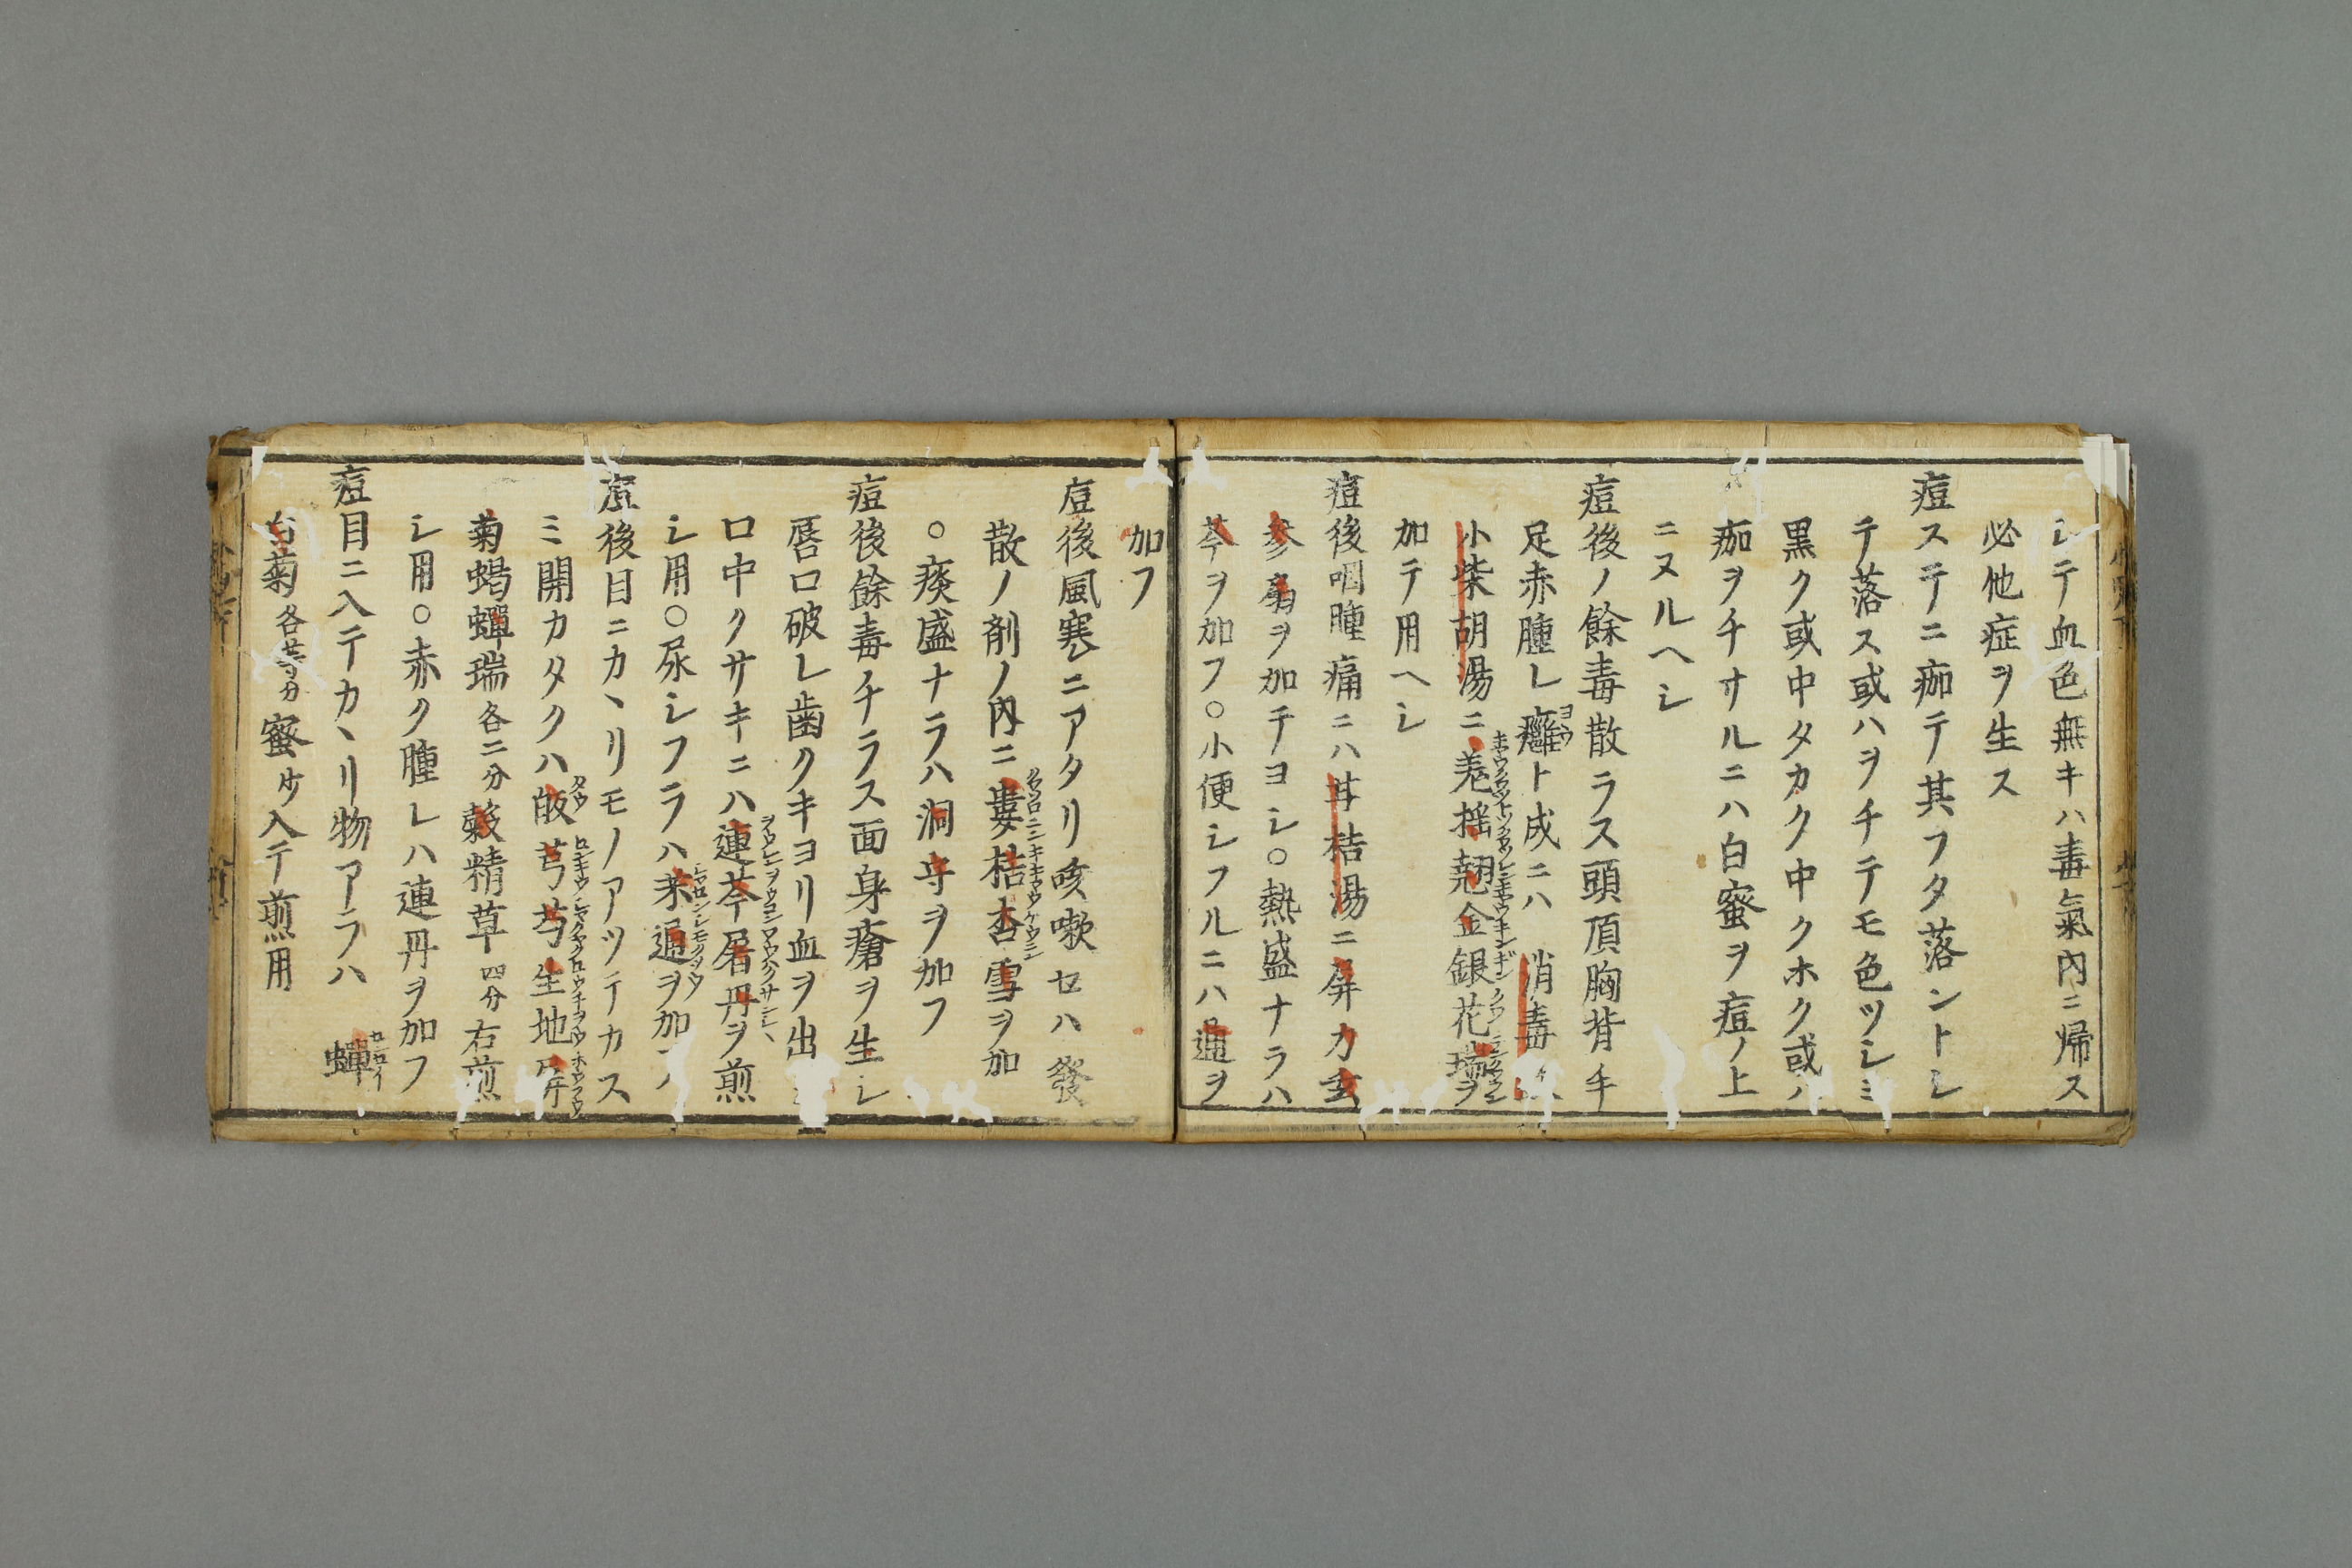 シテ血色無キハ毒氣內ニ帰ス
必他症ヲ生ス
痘ステニ痂テ其フタ落ントシ
テ落ス或ハヲチテモ色ツシミ
黒ク或中タカク中クホク或ハ
痂ヲチサルニハ白蜜ヲ痘ノ上
ニヌルヘシ
痘後ノ餘毒散ラス頭頂胸背手
足赤腫レ癰ト成ニハ消毒
小柴胡湯ニ羗揺翹金銀花璃ヲ
加テ用ヘシ
痘後咽腫痛ニハ甘桔湯ニ屏力玄
参翁ヲ加テヨシ○熱盛ナラハ
芩ヲ加フ○小便シフルニハ通ヲ
加フ
痘後風寒ニアタリ咳嗽セハ發
散ノ剤ノ內ニ蔞桔杏雪ヲ加
○痰盛ナラハ洞守ヲ加フ
痘後餘毒チラス面身瘡ヲ生シ
唇口破レ歯クキヨリ血ヲ出
口中クサキニハ連芩屠丹ヲ煎
シ用○尿シフラハ来通ヲ加フ
痘後目ニカヽリモノアツテカス
ミ開カタクハ皈芎芍生地屏
菊蝎蟬瑞各二分穀精草四分右煎
シ用○赤ク腫レハ連丹ヲ加フ
痘目ニ入テカヽリ物アラハ 蟬
菊各等分蜜少入テ煎用